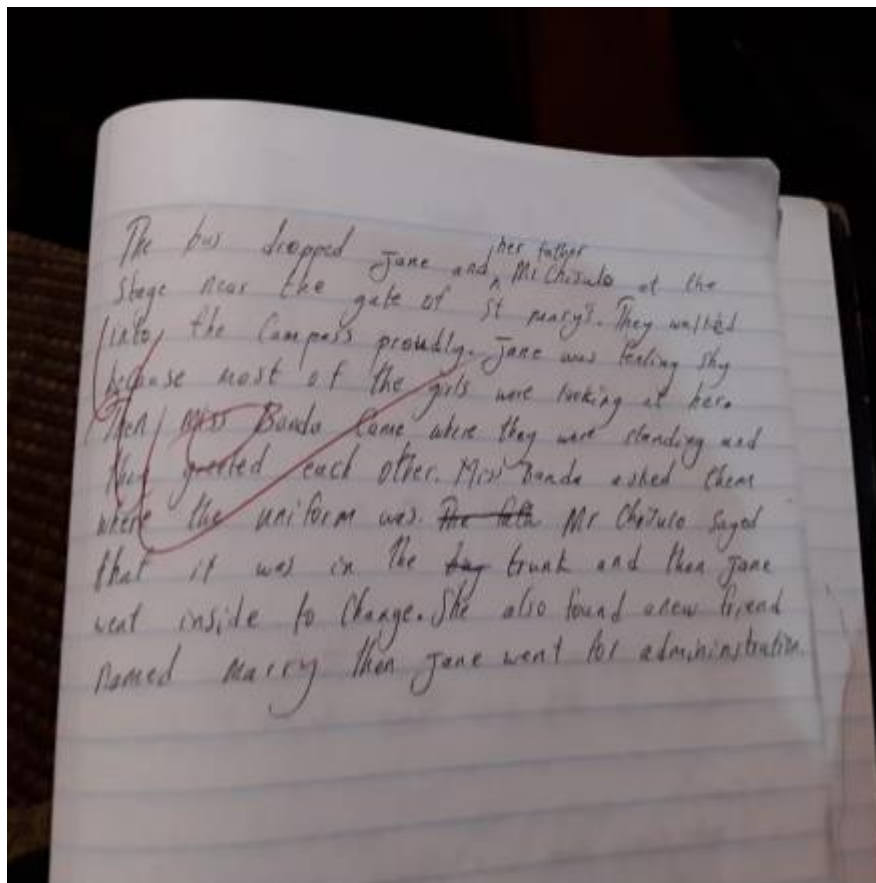 The bus dropped Jane and her father Mr Chisulo at the
stage near the gate of St mary's. They walked
into the Campass proudly. Jane was feeling shy
because most of the girls were looking at her.
Then Miss Banda Came where they were standing and
they greeted each other. Miss Banda asked them
where the uniform was. The fath Mr Chisulo sayed
that it was in the bag trunk and then Jane
went inside to Change. She also found anew friend
named Marry then Jane went for admininstration.